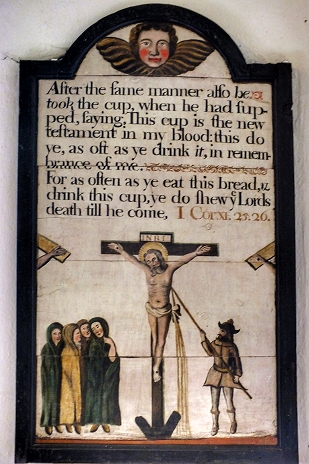 After the ſame manner alſo he
took the cup, when he had ſup-
ped, ſaying, This cup is the new
teſtament in my blood: this do
ye, as oft as ye drink it, in remem-
brance of me.
For as often as ye eat this bread, &
drink this cup, ye do ſhew yᵉ Lords
death till he come, I Cor. xi. 25. 26.
INRI